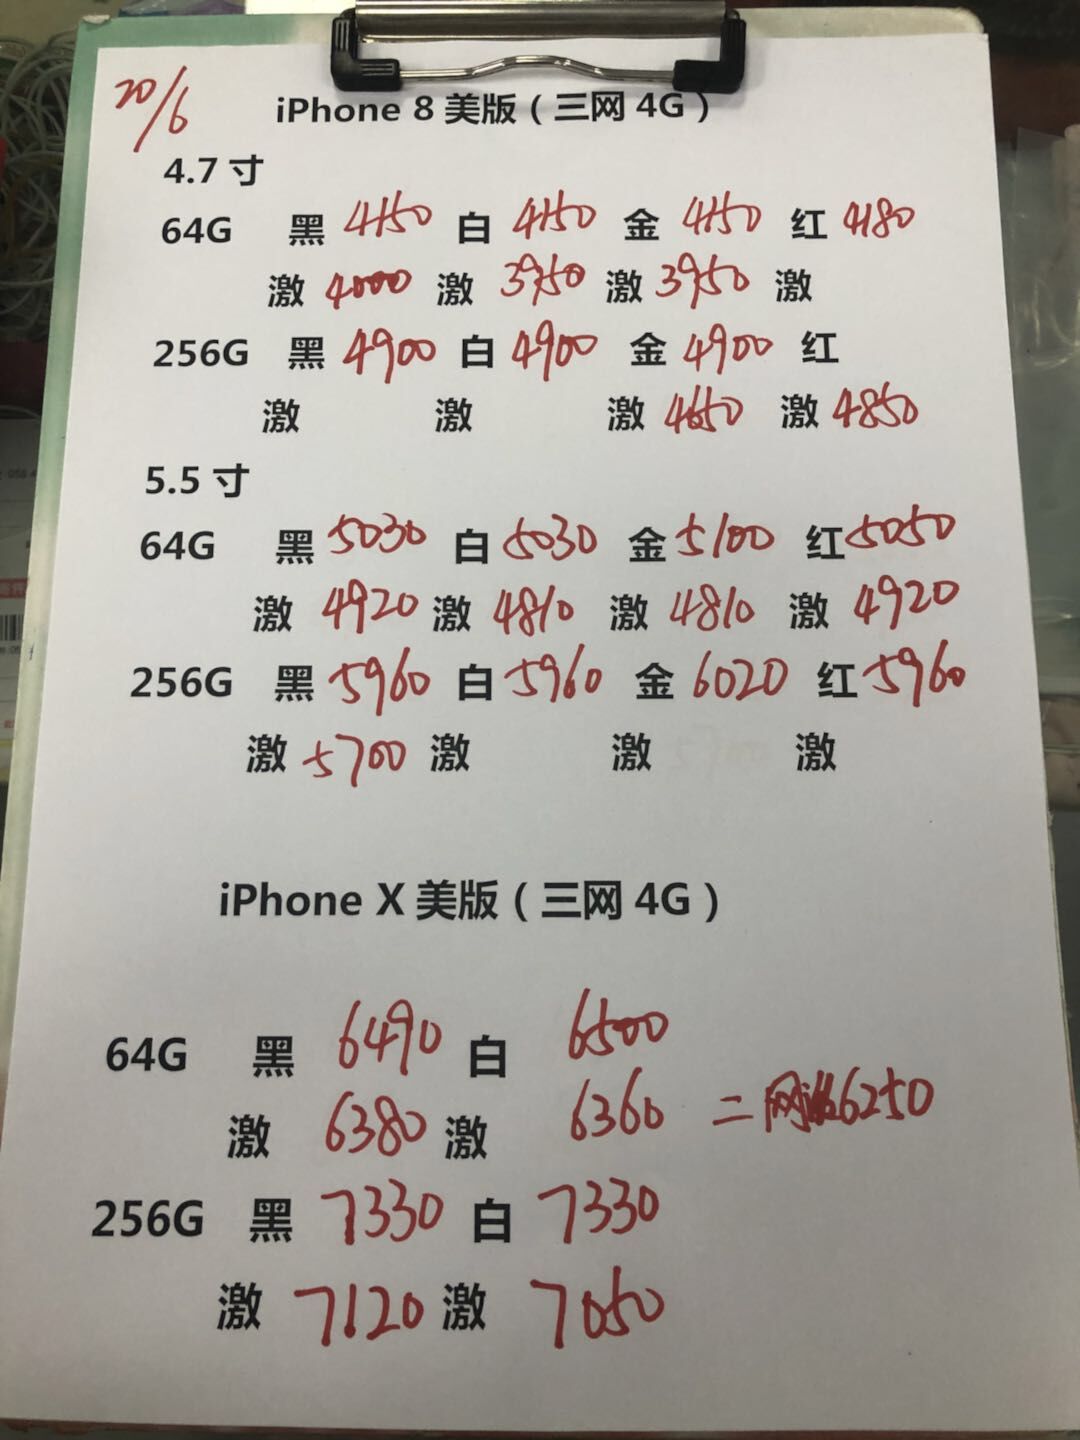 20/6
iPhone 8 美版（三网 4G）
4.7 寸
64G 黑 4150 白 4150 金 4150 红 4180
激 4000 激 3950 激 3950 激
256G 黑 4900 白 4900 金 4900 红
激 激 激 4650 激 4850
5.5 寸
64G 黑 5030 白 5030 金 5100 红 5050
激 4920 激 4810 激 4810 激 4920
256G 黑 5960 白 5960 金 6020 红 5960
激 5700 激 激 激
iPhone X 美版（三网 4G）
64G 黑 6490 白 6500
激 6380 激 6360 二网 6250
256G 黑 7330 白 7330
激 7120 激 7050